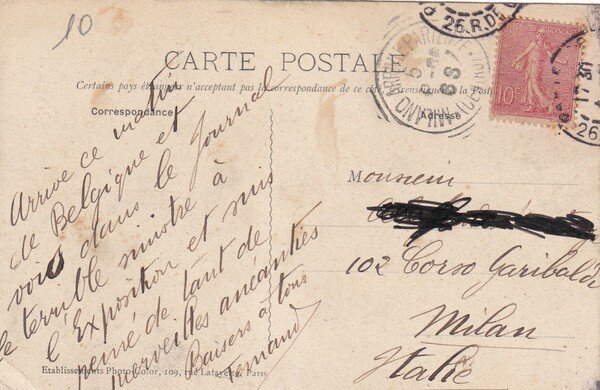 10
CARTE POSTALE
Certains pays étrangers n'acceptent pas la correspondance de ce côté, se renseigner à la Poste
Correspondance
Adresse
Arrivé ce matin
de Belgique et
vois dans le Journal
le terrible sinistre à
l'Exposition et suis
peiné de tant de
merveilles anéanties
Baisers à tous
Fernand
Monsieur
102 Corso Garibaldi
Milan
Italie
Etablissements Photo-Color, 109, rue Lafayette, Paris
10c
26. R. DE
MILANO
17 30
26